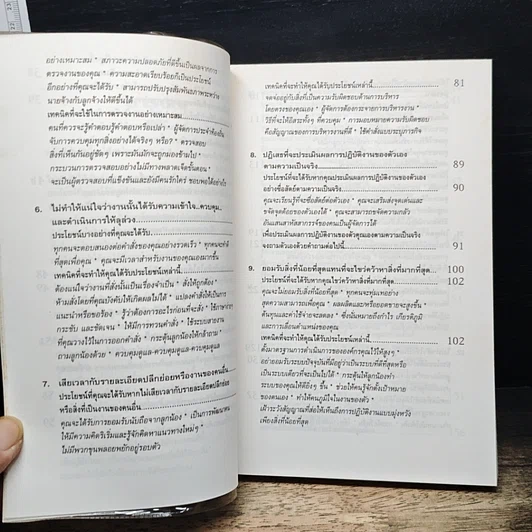 อย่างเหมาะสม * สภาวะความปลอดภัยที่ดีขึ้นเป็นผลจากการ
ตรวจงานของคุณ * ความสะอาดเรียบร้อยก็เป็นประโยชน์
อีกอย่างที่คุณจะได้รับ * สามารถปรับปรุงสัมพันธภาพระหว่าง
นายจ้างกับลูกจ้างให้ดีขึ้นได้
เทคนิคที่จะใช้ในการตรวจงานอย่างเหมาะสม
คนที่ควรจะรู้คำตอบรู้คำตอบหรือเปล่า * ผู้จัดการประจำท้องถิ่น
ได้จากการควบคุมทุกสิ่งอยู่ได้จริงๆ หรือ? * ตรวจสอบ
สิ่งที่เห็นกันอยู่ชัดๆ เพราะมันมักจะถูกมองข้ามไป *
กระบวนการตรวจสอบอย่างไม่มีทางพลาดเจ็ดขั้นตอน * คุณ
จะเป็นผู้ตรวจสอบที่แข็งขันและยังมีคนรักใคร่ ชอบพอได้อย่างไร
6. ไม่ทำให้แน่ใจว่างานนั้นได้รับความเข้าใจ...ควบคุม...
และดำเนินการให้ลุล่วง
ประโยชน์บางอย่างที่คุณจะได้รับ
ทุกคนจะตอบสนองต่อคำสั่งของคุณอย่างรวดเร็ว * ทุกคนจะทำดี
ที่สุดเพื่อคุณ * คุณจะมีเวลาสำหรับงานของคุณเองมากขึ้น
เทคนิคที่จะทำให้คุณได้รับประโยชน์เหล่านี้
ต้องแน่ใจว่างานที่สั่งนั้นเป็นเรื่องจำเป็น * สั่งให้ถูกต้อง *
ห้ามสั่งโดยที่คุณบังคับให้เกิดผลไม่ได้ * แปลงคำสั่งให้เป็นการ
แนะนำหรือขอร้อง * รู้ว่าต้องการอะไรก่อนที่จะสั่ง * ใช้ภาษาที่
กระชับ และชัดเจน * ให้มีการทวนคำสั่ง * ใช้ระบบสายงาน
ที่คุณวางไว้ในการออกคำสั่ง * กระตุ้นลูกน้องให้กล้าถาม *
ถามลูกน้องด้วย * ควบคุมดูแล-ควบคุมดูแล-ควบคุมดูแล
7. เสียเวลากับรายละเอียดปลีกย่อยหรืองานของคนอื่น
ประโยชน์ที่คุณจะได้รับหากไม่เสียเวลากับรายละเอียดปลีกย่อย
หรือสิ่งที่เป็นงานของคนอื่น
คุณจะได้รับการยอมรับนับถือจากลูกน้อง * เป็นการพัฒนาคน
ให้มีความคิดริเริ่มและรู้จักคิดหาแนวทางใหม่ๆ *
ไม่มีพวกขุนพลอยพยักอยู่รอบตัว
เทคนิคที่จะทำให้คุณได้รับประโยชน์เหล่านี้ 81
จดจ่ออยู่กับสิ่งที่เป็นความรับผิดชอบด้านการบริหาร
โดยตรงของคุณ * ผู้จัดการต้องกระจายการบริหารงาน *
วิธีที่จะให้อิสระทั้งๆ ที่ควบคุม * การมอบหมายความรับผิดชอบ
คือสัญญาณของการบริหารงานที่ดี * ใช้คำสั่งแบบระบุภารกิจ
8. ปฏิเสธที่จะประเมินผลการปฏิบัติงานของตัวเอง
ตามความเป็นจริง 89
ประโยชน์ที่จะได้รับหากคุณประเมินผลการปฏิบัติงานของตัวเอง
อย่างซื่อสัตย์ตามความเป็นจริง 90
คุณจะเรียนรู้ที่จะซื่อสัตย์ต่อตัวเอง * คุณจะเสริมส่งจุดเด่นและ
ขจัดจุดด้อยของตัวเองได้ * คุณจะสามารถขจัดความกลัว
อันแสนสาหัสสากรรจ์ของคนเป็นผู้จัดการได้
เพื่อประเมินผลการปฏิบัติงานของตัวคุณเองตามความเป็นจริง
จงถามตัวเองด้วยคำถามต่อไปนี้ 91
9. ยอมรับสิ่งที่น้อยที่สุดแทนที่จะไขว่คว้าหาสิ่งที่มากที่สุด 100
ประโยชน์ที่จะได้รับหากคุณไขว่คว้าหาสิ่งที่มากที่สุด 102
คุณจะไม่มีสิ่งที่น้อยที่สุด * ทุกคนจะทุ่มเทอย่าง
สุดความสามารถเพื่อคุณ * ผลผลิตและ/หรือยอดขายจะสูงขึ้น *
ต้นทุนและค่าใช้จ่ายจะลดลง * ซึ่งนั่นหมายถึงกำไร เกียรติภูมิ
และการเลื่อนตำแหน่งของคุณ
เทคนิคที่จะทำให้คุณได้รับประโยชน์เหล่านี้ 102
ตั้งมาตรฐานการดำเนินการขององค์กรคุณไว้ให้สูงๆ *
อย่ายอมรับระบบปัจจุบันที่มีอยู่ว่าเป็นระบบที่ดีที่สุดหรือ
เป็นระบบเดียวที่จะเป็นไปได้ * กระตุ้นให้ลูกน้องทำ
ระบบของคุณให้ดียิ่งๆ ขึ้น * ช่วยให้คนรู้จักตั้งเป้าหมาย
ของตนเอง * ทำให้คนภูมิใจในงานของตัว *
เฝ้าระวังสัญญาณที่ส่อให้เห็นถึงการปฏิบัติงานแบบมุ่งหวัง
เพียงสิ่งที่น้อยที่สุด